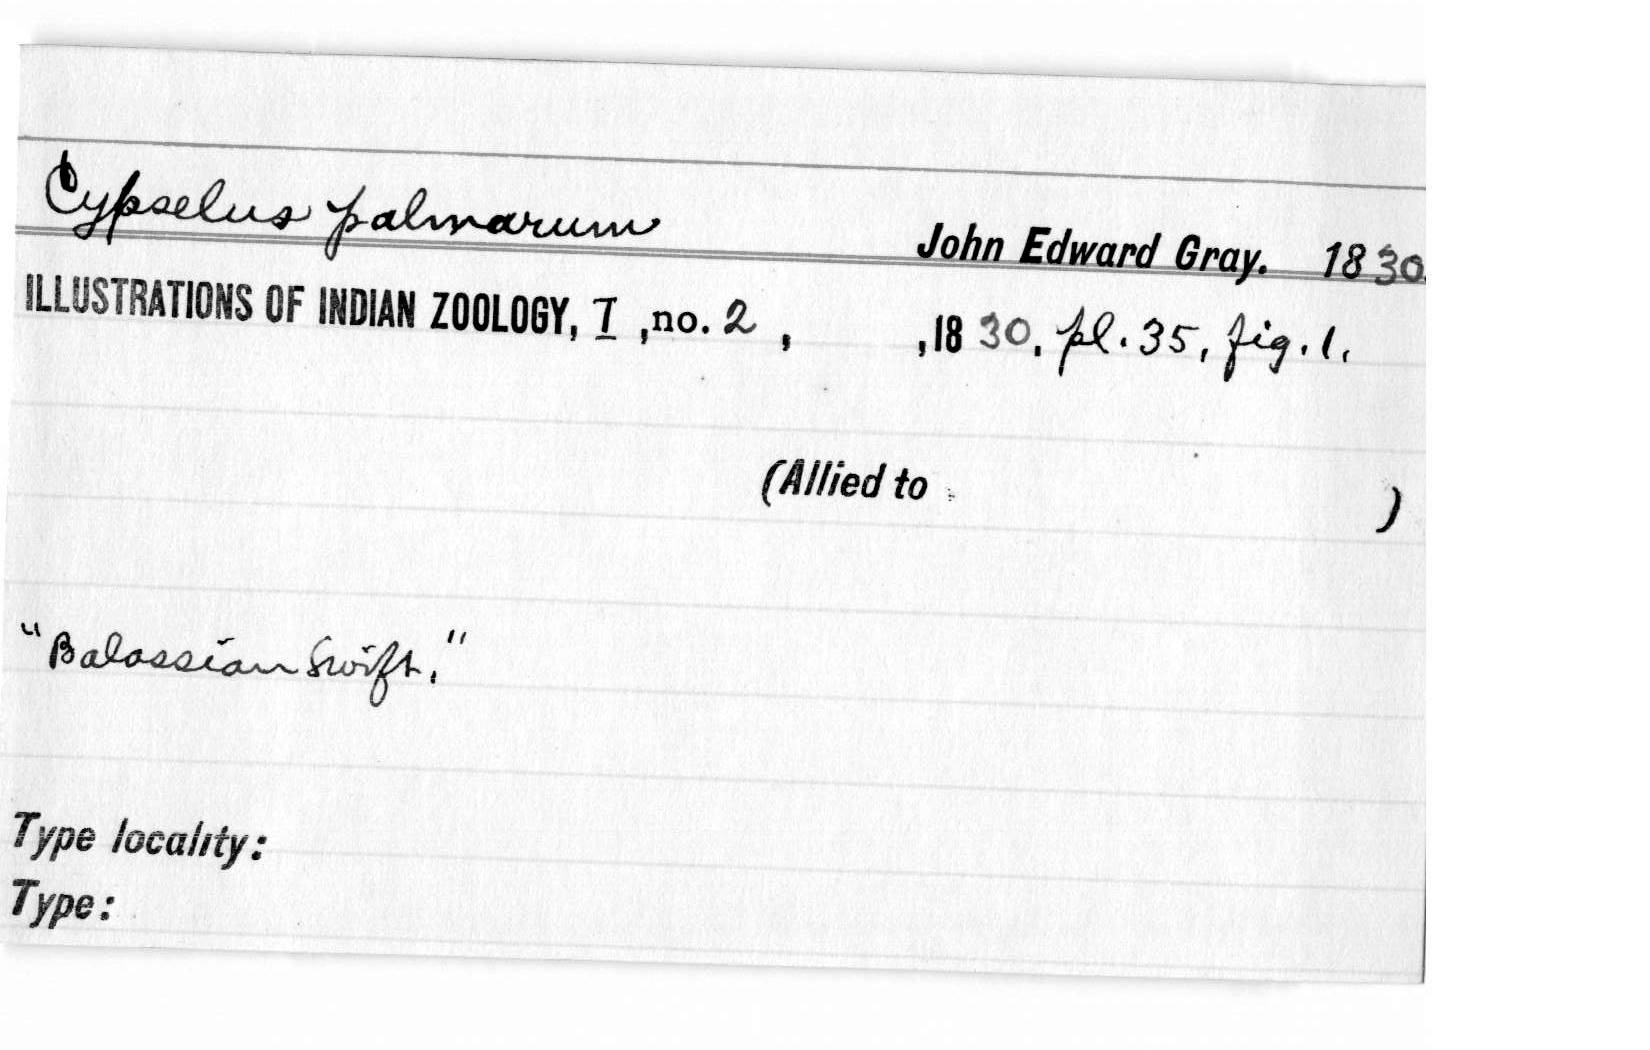 Cypselus palmarum John Edward Gray. 1830.
ILLUSTRATIONS OF INDIAN ZOOLOGY, I ,no. 2 , ,1830, pl. 35, fig. 1.
(Allied to )
"Balassian Swift."
Type locality:
Type: